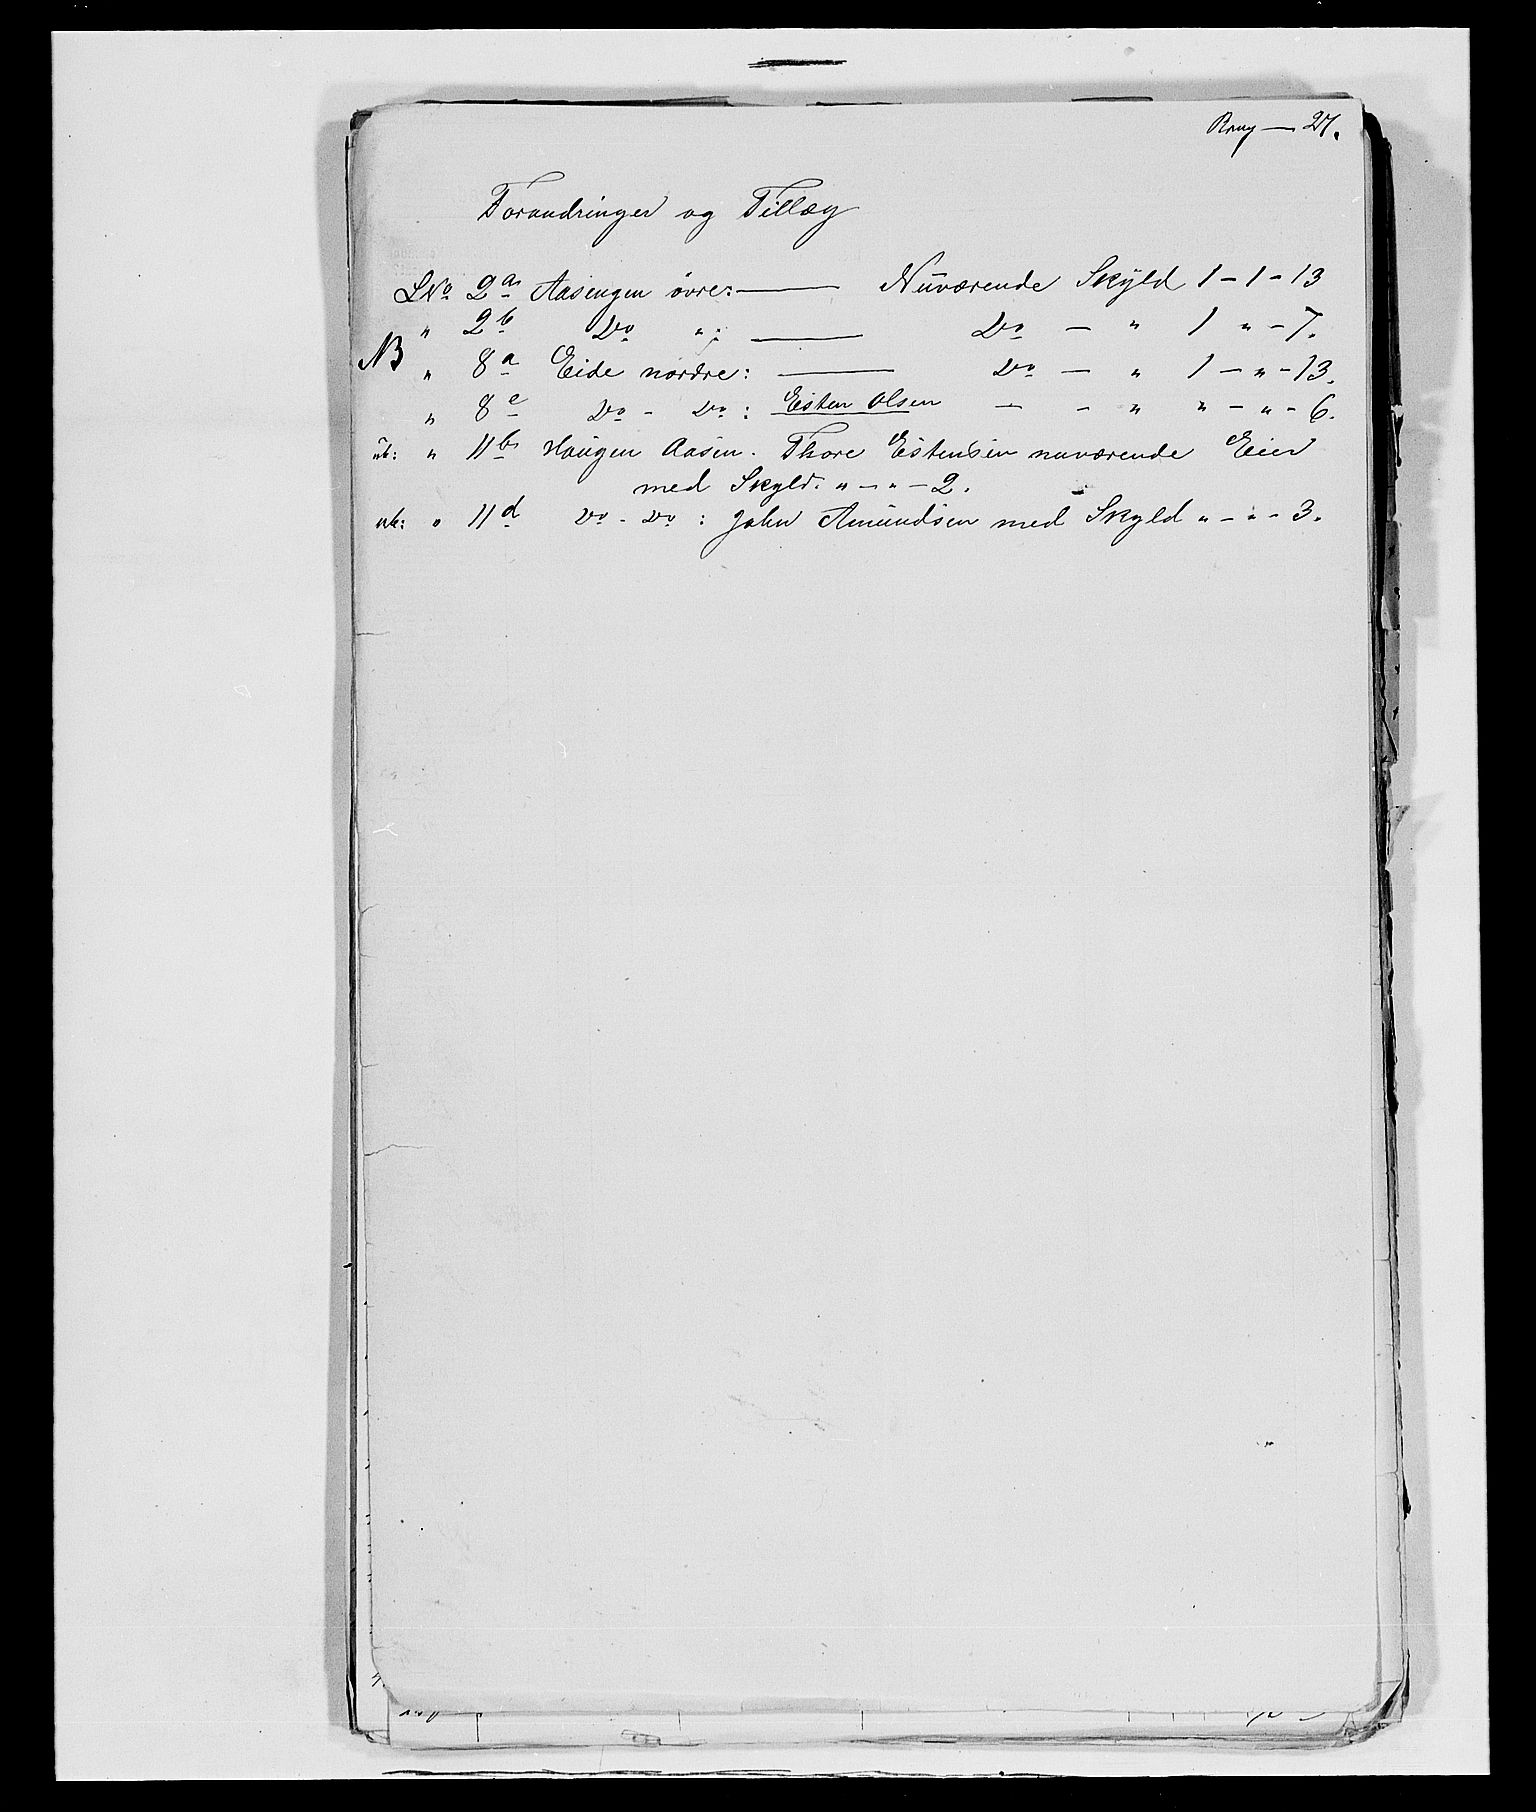 Brug — 27.
Forandringer og Tillæg
LNo 2a Aasengen övre: — Nüværende Skÿld 1 - 1 - 13
" 2b Do " : — Do — " 1 " - 7.
NB " 8a Eide nordre: — Do — " 1 — " - 13.
" 8e Do - Do : Esten Olsen — - " " — " - 6.
nb: " 11b Haügen Aasen. Thore Estensen nuværende Eier
med Skyld. " — " — 2.
nb: " 11d Do - Do : John Amündsen med Skyld " — " - 3.